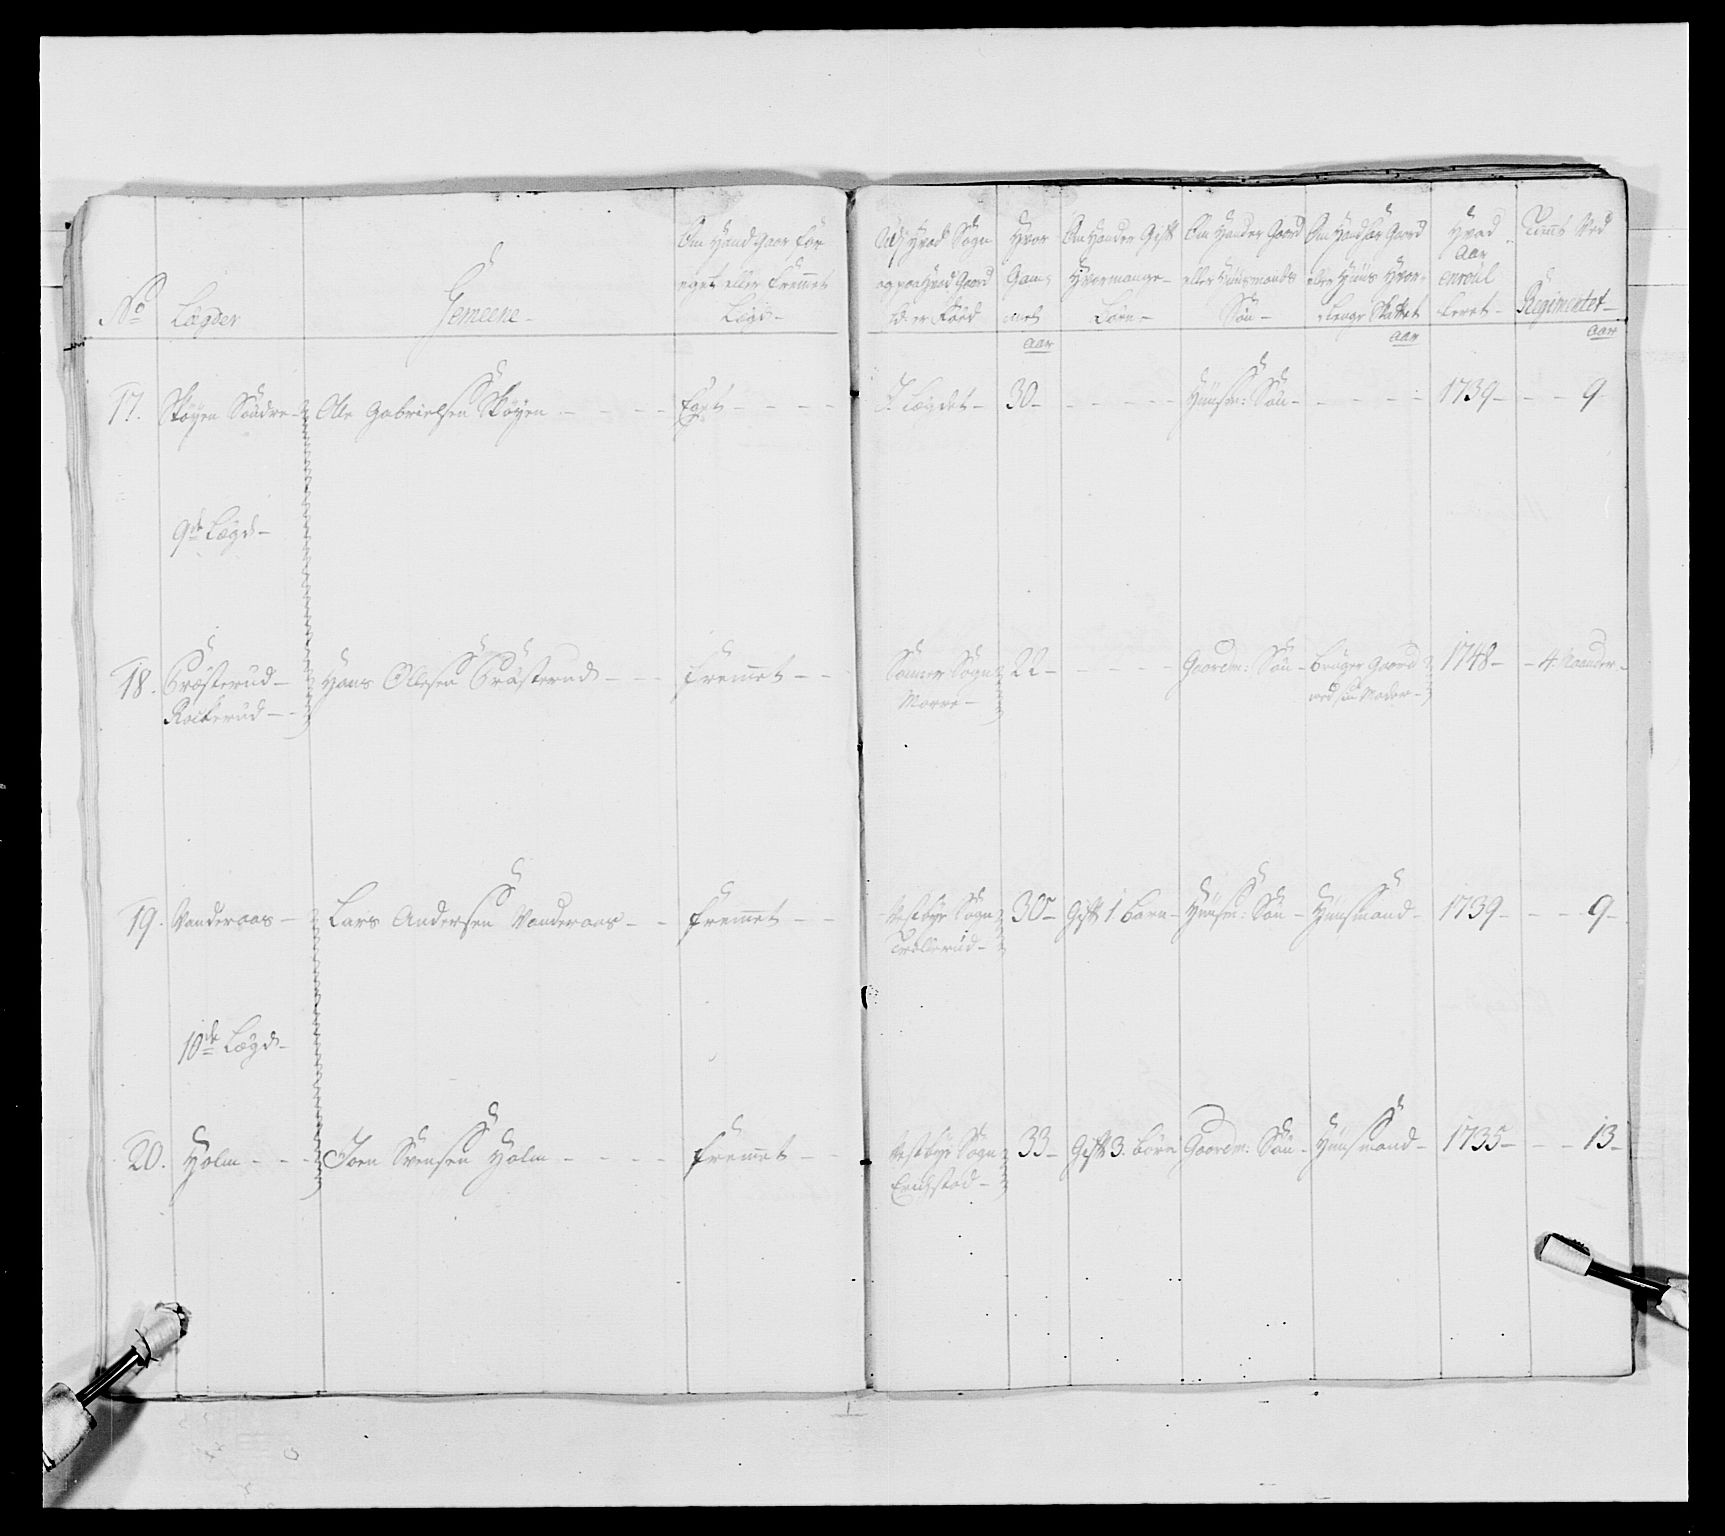 No Lægder Gemeene Om Hand Gaar for eget eller fremmet Lægd Udj Hvad Sogn og paa Hvad Gaard hd: er Föed Hvor Gam- mel Om Hander Gift Hvormange Börn Om Hander Gaard eller Huusmands Sön Om Handhar Gaard eller Huus Hvor- lenge Skattet Hvad Aar enroul leret Tient Ved Regimentet
aar aar aar
17. Sköyen Söndre Ole Gabrielsen Sköyen Eget J Lægdet 30 Huusm: Sön 1739 9
9de Lægd
18. Præsterud Hans Olesen Præsterud fremmet Sanner Sogn 22 Gaardm: Sön bruger Gaard 1748 4 Maander
Morre med sin Moder
19. Vanderaas Lars Andersen Vanderaas fremmet Vestbye Sogn 30 Gift 1 barn Huusm: Sön Huusmand 1739 9
Trollerud
10de Lægd
20. Holm Joen Svensen Holm fremmet Vestbye Sogn 33 Gift 3 börn Gaardm: Sön Huusmand 1735 13